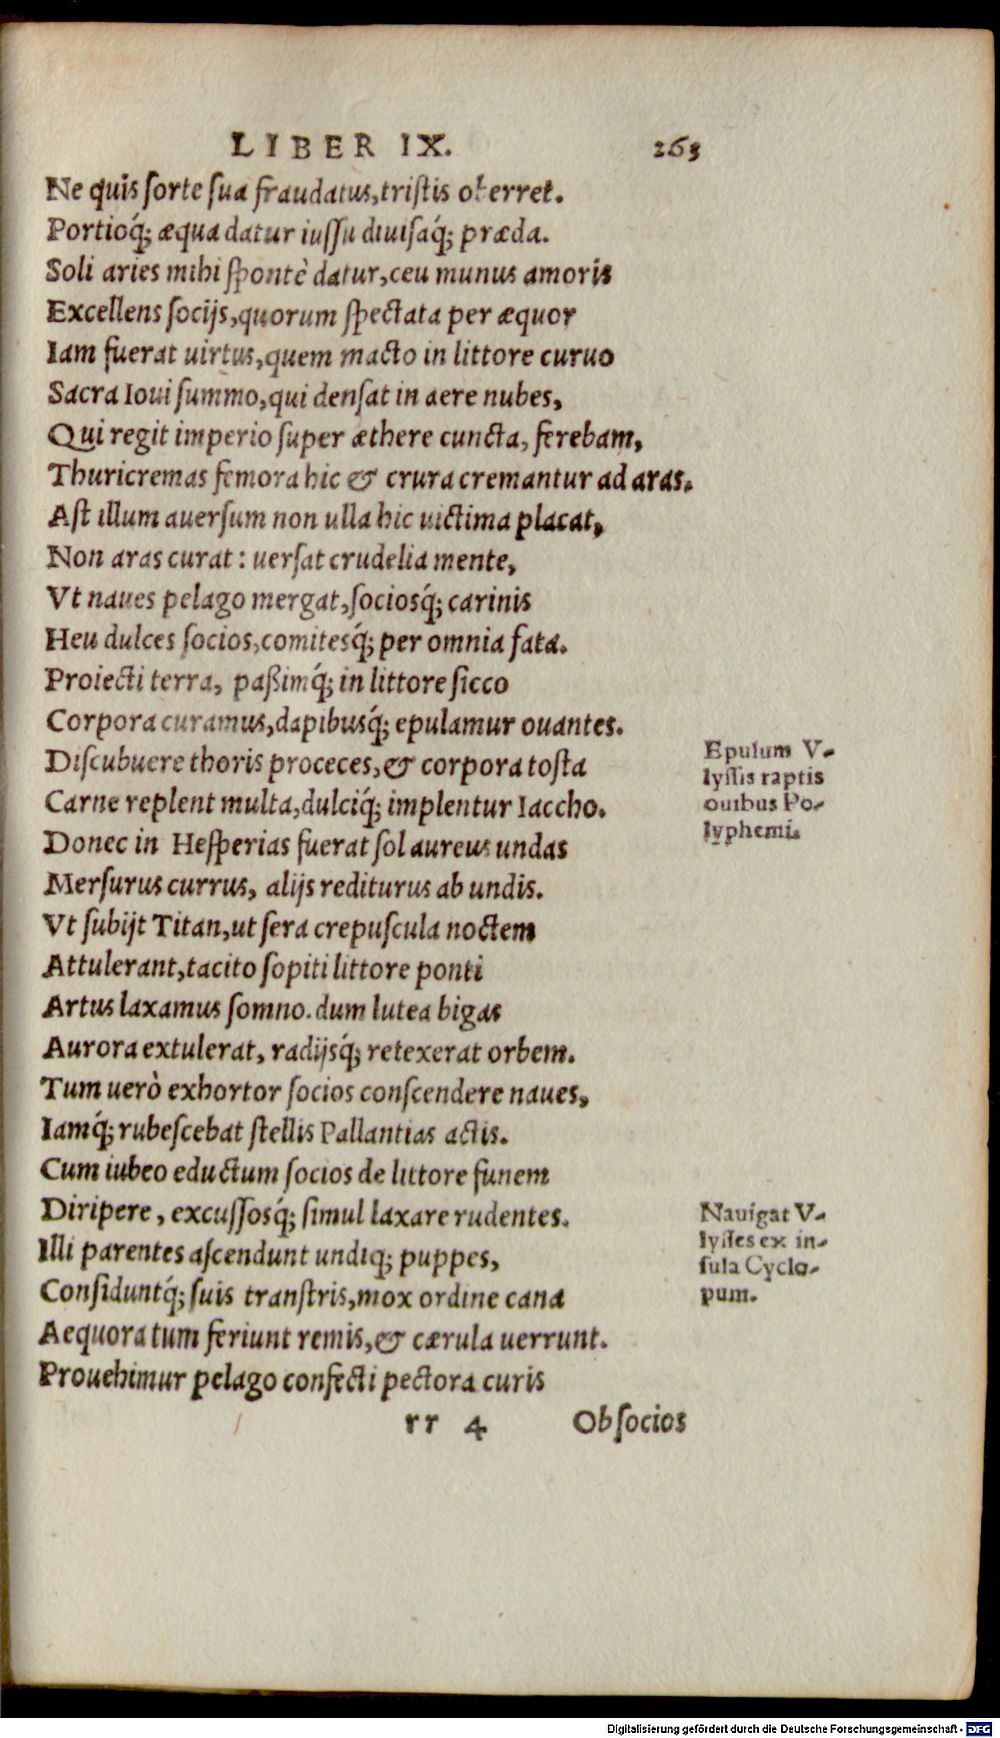 LIBER IX. 263
Ne quis sorte sua fraudatus, tristis oberret.
Portioq́; æqua datur iussu diuisaq́; præda.
Soli aries mihi spontè datur, ceu munus amoris
Excellens socijs, quorum spectata per æquor
Iam fuerat uirtus, quem macto in littore curuo
Sacra Ioui summo, qui densat in aere nubes,
Qui regit imperio super æthere cuncta, ferebam,
Thuricremas femora hic & crura cremantur ad aras.
Ast illum auersum non ulla hic uictima placat,
Non aras curat: uersat crudelia mente,
Vt naues pelago mergat, sociosq́; carinis
Heu dulces socios, comitesq́; per omnia fata.
Proiecti terra, paßimq́; in littore sicco
Corpora curamus, dapibusq́; epulamur ouantes.
Discubuere thoris proceces, & corpora tosta
Carne replent multa, dulciq́; implentur Iaccho.
Donec in Hesperias fuerat sol aureus undas
Mersurus currus, alijs rediturus ab undis.
Vt subijt Titan, ut sera crepuscula noctem
Attulerant, tacito sopiti littore ponti
Artus laxamus somno. dum lutea bigas
Aurora extulerat, radijsq́; retexerat orbem.
Tum uerò exhortor socios conscendere naues,
Iamq́; rubescebat stellis Pallantias actis.
Cum iubeo eductum socios de littore funem
Diripere, excussosq́; simul laxare rudentes.
Illi parentes ascendunt undiq; puppes,
Considuntq́; suis transtris, mox ordine cana
Aequora tum feriunt remis, & cærula uerrunt.
Prouehimur pelago confecti pectora curis
rr 4 Ob socios
Epulum V-
lyssis raptis
ouibus Po-
lyphemi.
Nauigat V-
lysses ex in-
sula Cyclo-
pum.
Digitalisierung gefördert durch die Deutsche Forschungsgemeinschaft - DFG